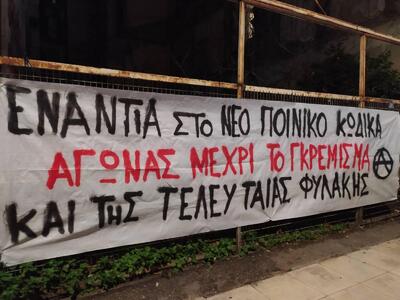 ΕΝΑΝΤΙΑ ΣΤΟ ΝΕΟ ΠΟΙΝΙΚΟ ΚΩΔΙΚΑ
ΑΓΩΝΑΣ ΜΕΧΡΙ ΤΟ ΓΚΡΕΜΙΣΜΑ
ΚΑΙ ΤΗΣ ΤΕΛΕΥΤΑΙΑΣ ΦΥΛΑΚΗΣ